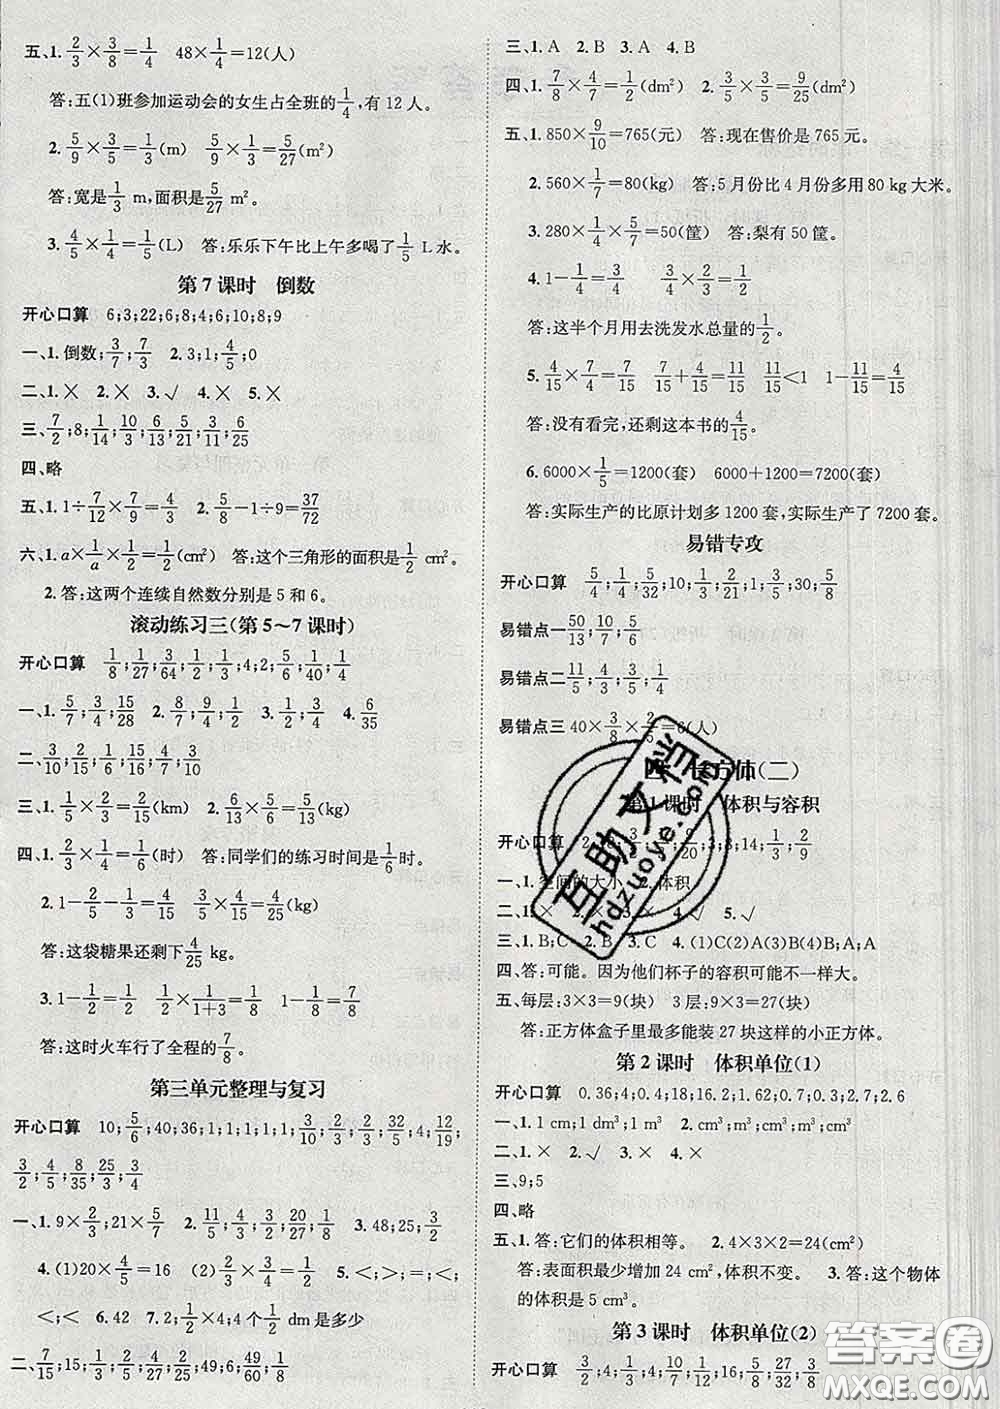 五、1. 2/3×3/8=1/4 48×1/4=12(人)
答:五(1)班参加运动会的女生占全班的1/4,有 12 人。
2. 5/9×3/5=1/3(m) 5/9×1/3=5/27(m²)
答:宽是1/3 m,面积是5/27 m²。
3. 4/5×1/4=1/5(L) 答:乐乐下午比上午多喝了1/5 L水。
第 7 课时 倒数
开心口算 6;3;22;6;8;4;6;10;8;9
一、1.倒数;3/7;7/3 2.3;1;4/5;0
二、1.× 2.× 3.√ 4.× 5.×
三、7/2;8;1/14;10/3;6/13;5/21;3/11;6/25
四、略
五、1. 1÷7/12×7/9=4/3 2. 5/8-1÷9=37/72
六、1. a×1/a×1/2=1/2(cm²) 答:这个三角形的面积是1/2 cm²。
2.答:这两个连续自然数分别是 5 和 6。
滚动练习三(第 5~7 课时)
开心口算 1/8;1/27;3/64;1/2;1/3;4;2;5/6;1/40;1/4
一、1. 5/7;3/4;15/28 2. 7/8;9/7 3. 1/2;1/4 4. 6/35
二、3/10;2/15;1/2;15/16;4/15;3/10
三、1. 3/5×1/2=3/10(km) 2. 6/13×5/6=5/13(m²)
四、1. 2/3×1/4=1/6(时) 答:同学们的练习时间是1/6时。
2. 1-2/5-1/5=2/5 2/5×2/5=4/25(kg)
答:这袋糖果还剩下4/25 kg。
3. 1-1/2=1/2 1/2×1/1+3=1/8 1-1/8=7/8
答:这时火车行了全程的7/8。
第三单元整理与复习
开心口算 10;5/6;40;36;1;1;1;1;3/10;2/3;2/3;32/5;4;12/19;
3/2;4/5;8/35;25/3;3/4
一、1. 9×2/3;21×5/7 2. 11/5;4/3;20/27;1/8 3. 48;25;3/2
4. (1)20×4/5=16 (2)2/3×3/4=1/2 5. <;>;=;<;>;
<;< 6. 42 7. 4个1/2 dm是多少
二、7/15;15;1/3;2/15;49;6;49/60;1/8
三、1. A 2. B 3. A 4. B
四、1. 7/8×4/7=1/2(dm²) 2. 3/5×3/5=9/25(dm²)
五、1. 850×9/10=765(元) 答:现在售价是 765 元。
2. 560×1/7=80(kg) 答:5 月份比 4 月份多用 80 kg 大米。
3. 280×1/4×5/7=50(筐) 答:梨有 50 筐。
4. 1-1/4=3/4 3/4×2/3=1/2
答:这半个月用去洗发水总量的1/2。
5. 4/15×7/4=7/15 7/15+4/15=11/15 11/15<1 1-11/15=4/15
答:没有看完,还剩这本书的4/15。
6. 6000×1/5=1200(套) 6000+1200=7200(套)
答:实际生产的比原计划多 1200 套,实际生产了 7200 套。
易错专攻
开心口算 5/4;1/4;1/2;10;1/3;1/2;1;3/5;30;5/8
易错点一 50/13;10/7;6/5
易错点二 11/5;4/5;3/5;1/4
易错点三 40×3/8×2/5=6(人)
方体(二)
第 1 课时 体积与容积
一、1.空间的大小 2.体积
二、1.× 2.× 3.× 4.√ 5.√
三、1. B;C 2. B 3. C 4. (1)C(2)A(3)B(4)B;A;A
四、答:可能。因为他们杯子的容积可能不一样大。
五、每层:3×3=9(块) 3 层:9×3=27(块)
答:正方体盒子里最多能装 27 块这样的小正方体。
第 2 课时 体积单位(1)
开心口算 0.36;4;0.4;18;16.2;1.62;0.7;3.2;7;2.6
一、1. 1 cm;1 dm³;1 m³ 2. cm³;m³;cm³;dm³
二、1.× 2.√ 3.× 4.×
三、9;5
四、略
五、1.答:它们的体积相等。 2. 4×3×2=24(cm²)
答:表面积最少增加 24 cm²,体积不变。 3.答:这个物体
的体积是 5 cm³。
第 3 课时 体积单位(2)
开心口算 3/4;4;1/3;4;7/10;4/7;16;5/32;27/32;3/8
互助文档
hdzuoye.com
答案圈
MXQE.COM